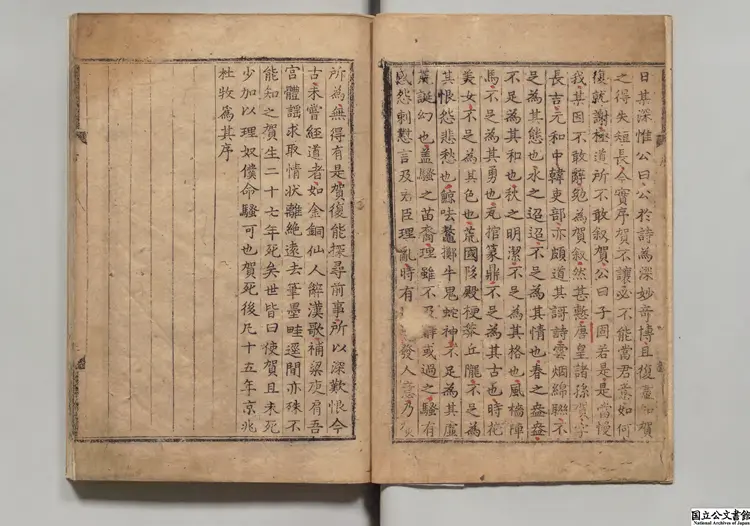 日某深惟公曰公於詩為深妙奇博且復盡知賀
之得失短長今實序賀不讓必不能當君意如何
復就謝極道所不敢叙賀公曰子固若是是當慢
我某因不敢辭勉為賀叙然甚慙唐皇諸孫賀字
長吉元和中韓吏部亦頗道其謌詩雲烟綿聯不
足為其態也水之迢迢不足為其情也春之盎盎
不足為其和也秋之明潔不足為其格也風檣陣
馬不足為其勇也瓦棺篆鼎不足為其古也時花
美女不足為其色也荒國陊殿梗莽丘隴不足為
其恨怨悲愁也鯨呿鼇擲牛鬼蛇神不足為其虛
荒誕幻也蓋騷之苗裔理雖不及辭或過之騷有
感怨刺懟言及君臣理亂時有發人意乃
所為無得有是賀復能探尋前事所以深歎恨今
古未嘗經道者如金銅仙人辭漢歌補梁庾肩吾
宮體謡求取情狀離絶遠去筆墨畦逕間亦殊不
能知之賀生二十七年死矣世皆曰使賀且未死
少加以理奴僕命騷可也賀死後凡十五年京兆
杜牧為其序
国立公文書館
National Archives of Japan